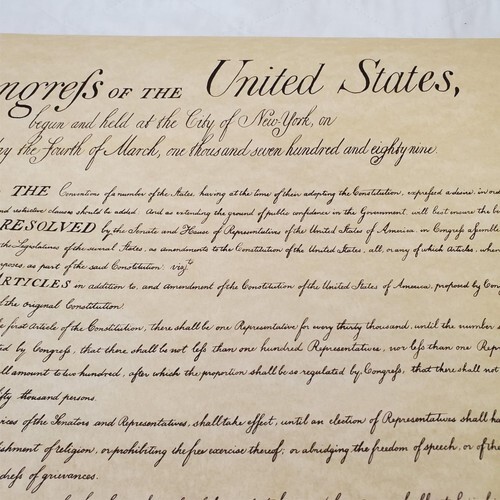 ngreſs OF THE United States,
begun and held at the City of New-York, on
the Fourth of March, one thousand seven hundred and eighty nine
THE Conventions of a number of the States, having at the time of their adopting the Constitution, expreſsed a desire, in
and restrictive clauses should be added. And as extending the ground of public confidence in the Government, will best insure the
RESOLVED by the Senate and House of Representatives of the United States of America, in Congreſs aſsemble
the Legislatures of the several States, as amendments to the Constitution of the United States, all, or any of which Articles, when
poses, as part of the said Constitution. vizt
ARTICLES in addition to, and amendment of the Constitution of the United States of America, proposed by Cong
the original Constitution.
first Article of the Constitution, there shall be one Representative for every thirty thousand, until the number s
ed by Congreſs, that there shall be not leſs than one hundred Representatives, nor leſs than one Repr
all amount to two hundred, after which the proportion shall be so regulated by Congreſs, that there shall not
fifty thousand persons.
ices of the Senators and Representatives, shall take effect, until an election of Representatives shall ha
lishment of religion, or prohibiting the free exercise thereof; or abridging the freedom of speech, or of the
dreſs of grievances.